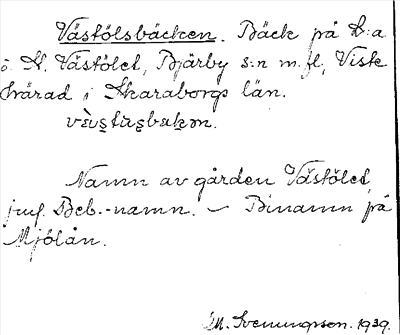 Västölsbäcken. Bäck på h:a
o. N. Västölet, Bjärby s:n m.fl., Viste
härad i Skaraborgs län.
Namn av gården Västölet,
jmf. Beb.-namn. – Binamn på
Mjölån.
M. Svenungson. 1939.